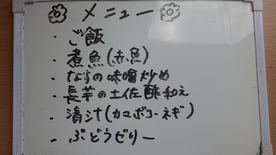 メニュー
・ご飯
・煮魚(赤魚)
・なすの味噌炒め
・長芋の土佐酢和え
・清汁(カマボコ・ネギ)
・ぶどうゼリー